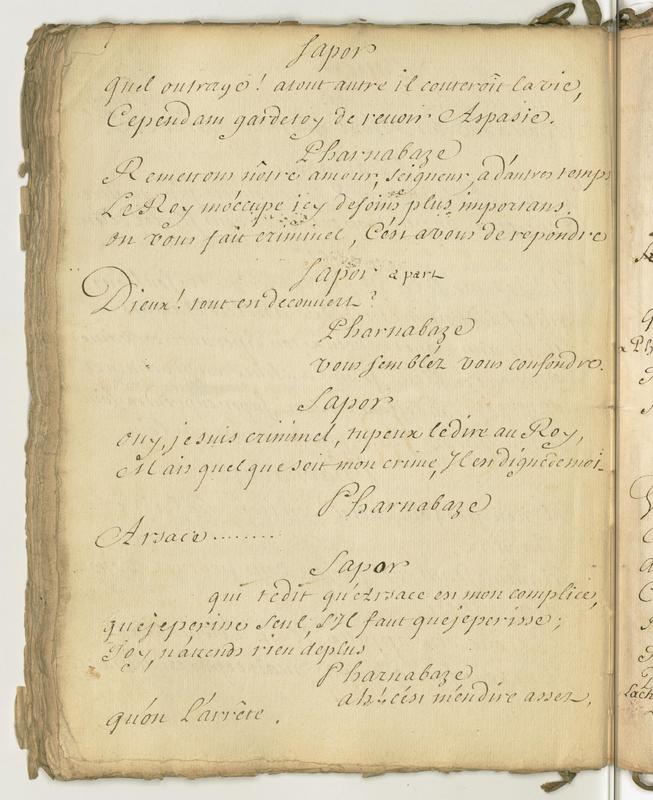 Sapor
quel outrage! atout autre il conteroit la vie,
Cependam garde toy de reuoir Aspasie.
Pharnabaze
Remettons nôtre amour, seigneur, à d'autres temps
Le Roy m'occupe icy de soins plus importans.
on vous fait criminel, C'est a vous de repondre
Sapor à part
Dieux! tout en decouvert?
Pharnabaze
vous sembléz vous confondre.
Sapor
ouy, je suis criminel, tu peux le dire au Roy,
Mais quel que soit mon crime, Il en digne de moi.
Pharnabaze
Arsace........
Sapor
qui te dit qu'Arsace en mon complice,
que je perisse seul, s'Il faut que je perisse;
Toy, n'attends rien de plus
Pharnabaze
ah! c'est m'en dire assez,
qu'on l'arrête.